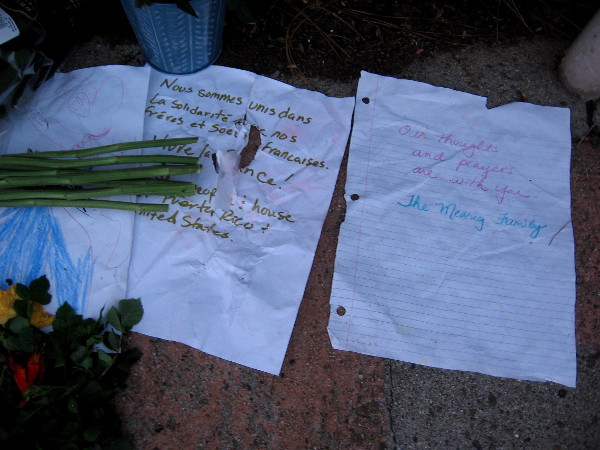 Nous sommes unis dans
La solidarité nos
frères et Soeurs Françaises.
Vive la France!
house
Puerto Rico +
United States.
Our thoughts
and prayers
are with you
The Mearig Family